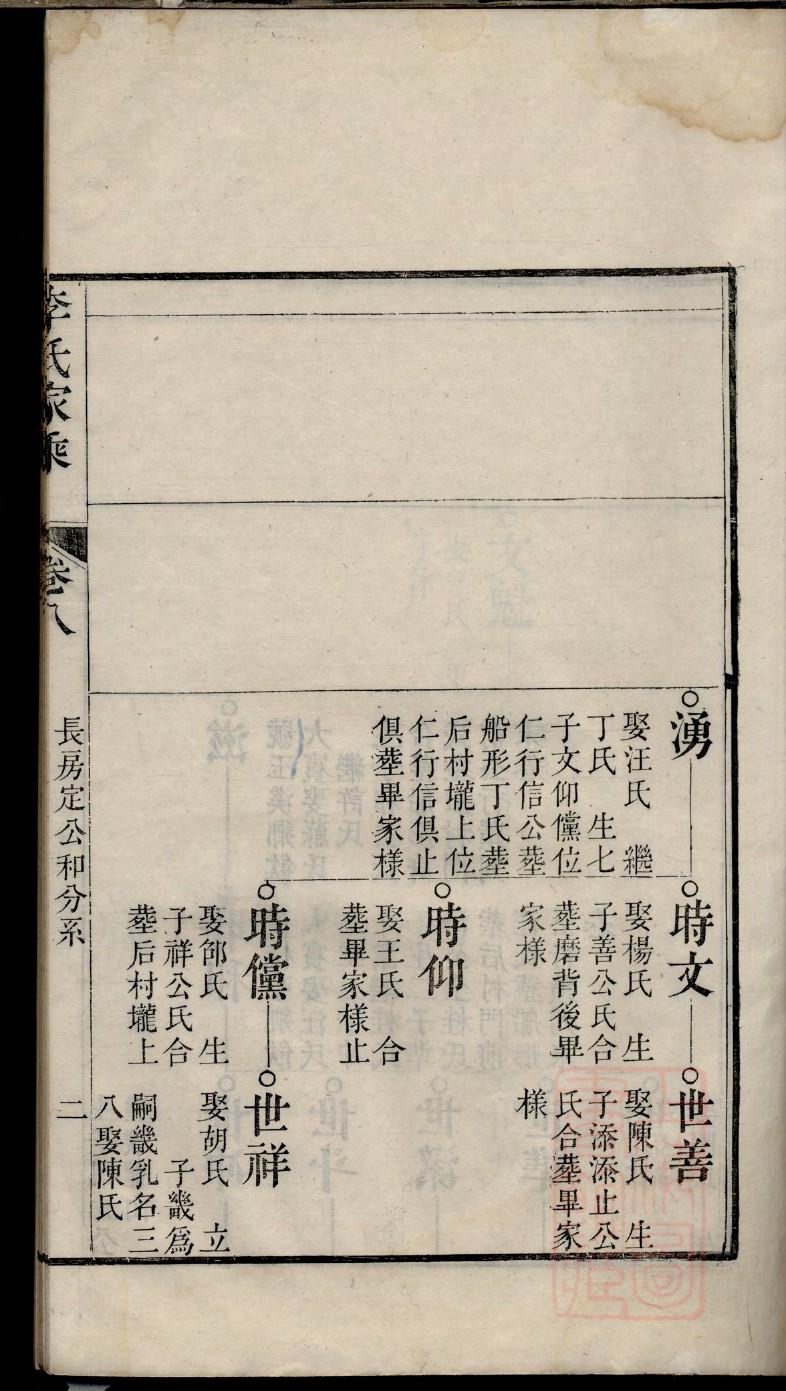 湧
娶汪氏　繼
丁氏　生七
子文仰儻位
仁行信公塟
船形丁氏塟
后村壠上位
仁行信俱止
俱塟畢家様
時文
娶楊氏　生
子善公氏合
塟磨背後畢
家様
世善
娶陳氏　生
子添添止公
氏合塟畢家
様
時仰
娶王氏　合
塟畢家様止
時儻
娶邰氏　生
子祥公氏合
塟后村壠上
世祥
娶胡氏　立
子畿爲
嗣畿乳名三
八娶陳氏
李氏家乘
卷八
長房定公和分系
二